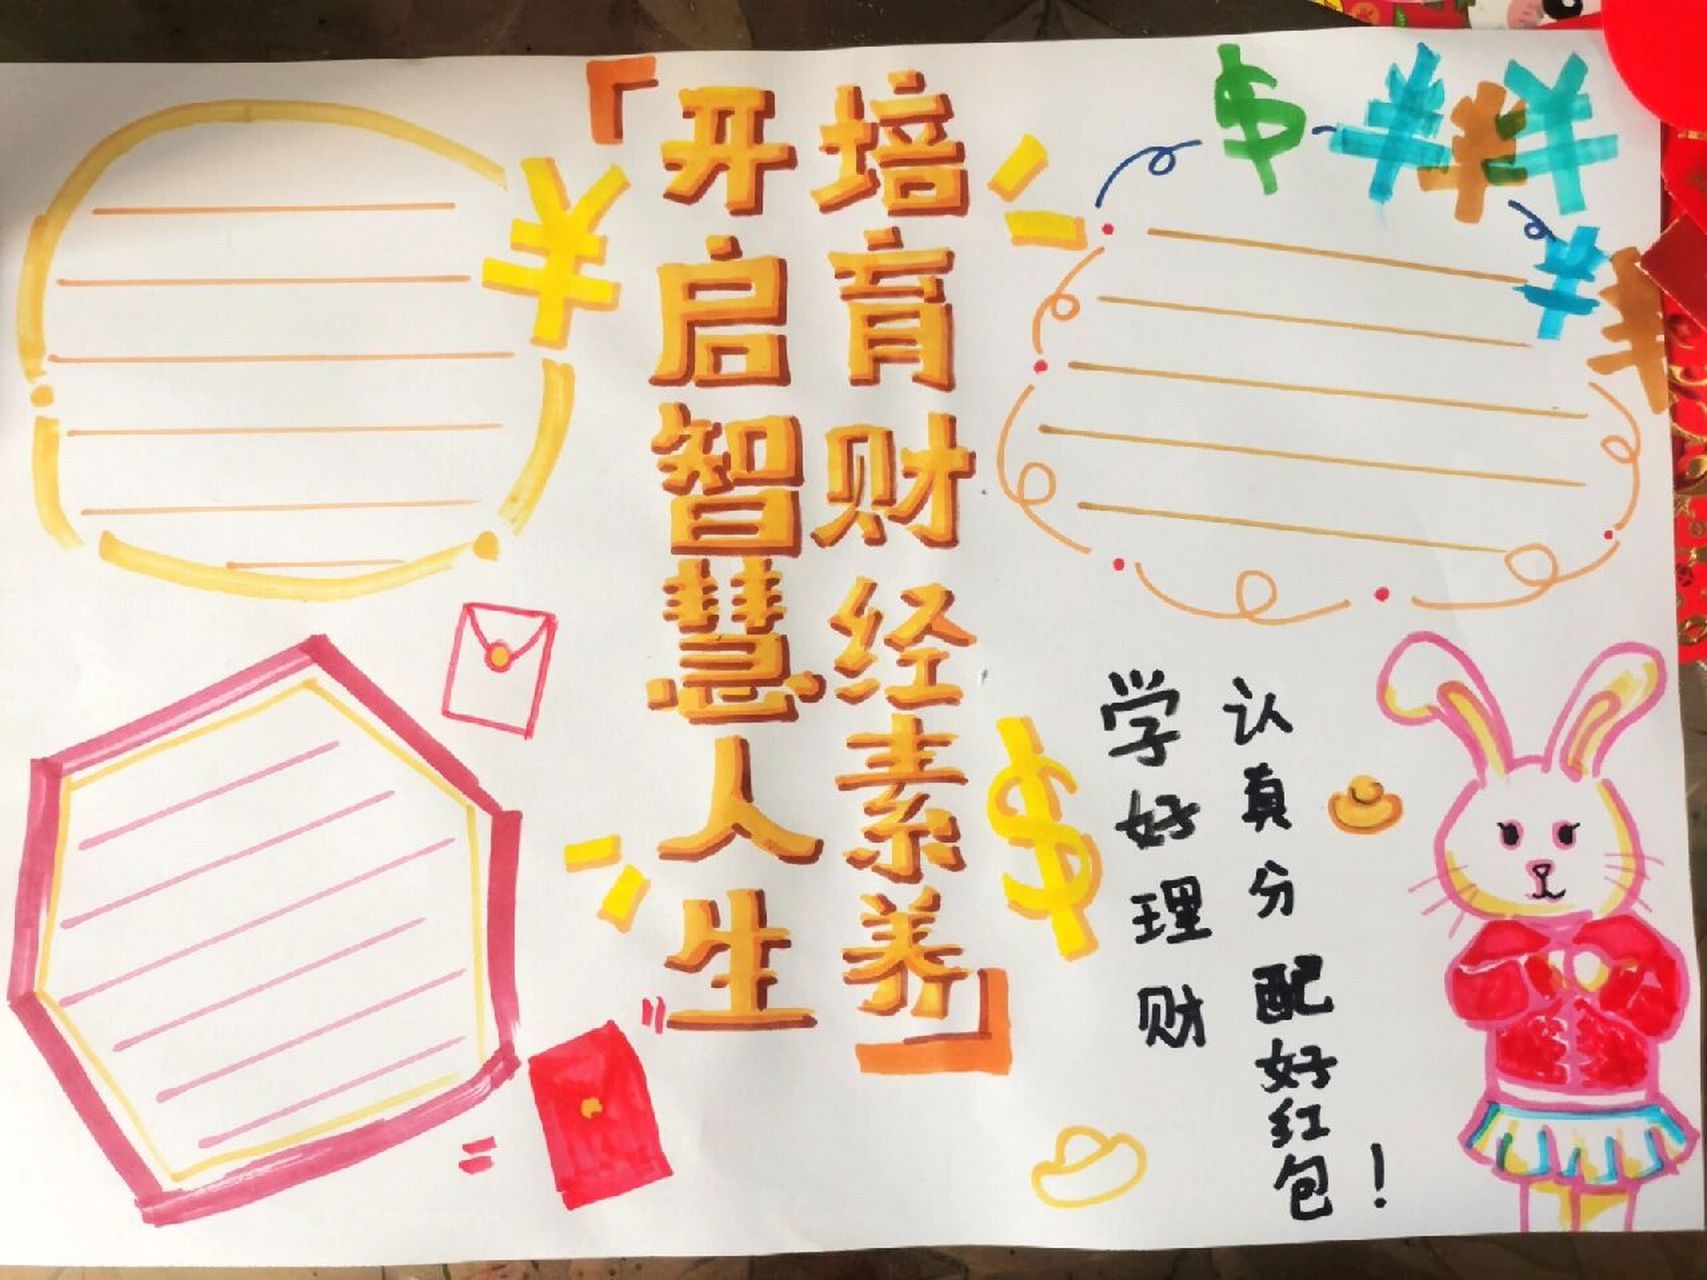 「开启智慧人生
培育财经素养」
学好理财
认真分配好红包!